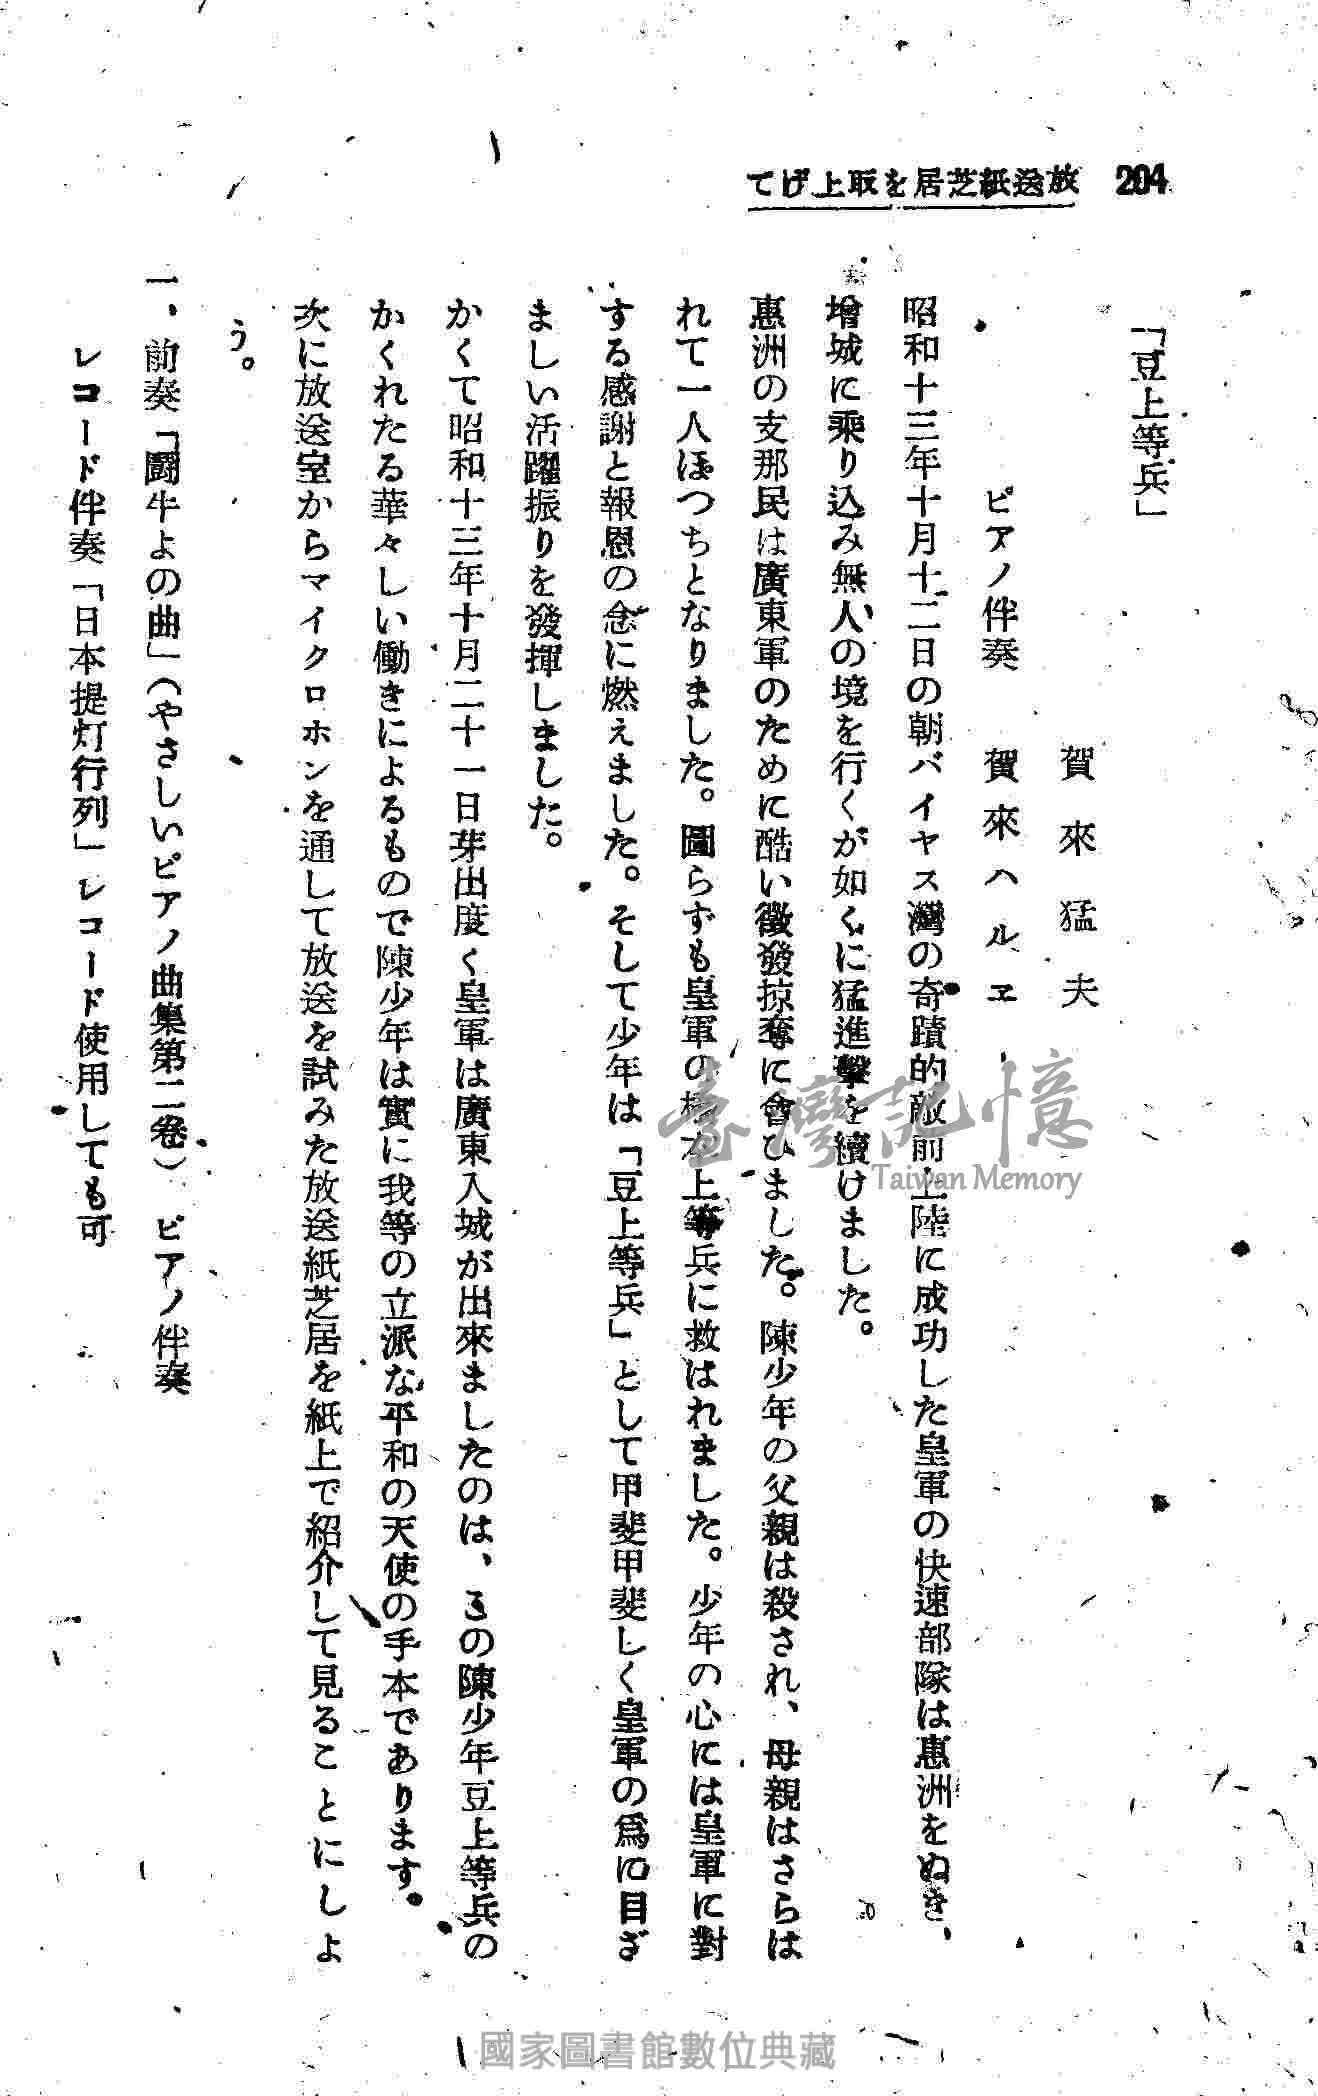 204
放送紙芝居を取上げて
「豆上等兵」
賀來猛夫
ピアノ伴奏 賀來ハルヱ
昭和十三年十月十二日の朝バイヤス灣の奇蹟的敵前上陸に成功した皇軍の快速部隊は惠洲をぬき、
增城に乘り込み無人の境を行くが如くに猛進擊を續けました。
惠洲の支那民は廣東軍のために酷い徵發掠奪に會ひました。陳少年の父親は殺され、母親はさらは
れて一人ぼつちとなりました。圖らずも皇軍の橋本上等兵に救はれました。少年の心には皇軍に對
する感謝と報恩の念に燃えました。そして少年は「豆上等兵」として甲斐甲斐しく皇軍の爲に目ざ
ましい活躍振りを發揮しました。
かくて昭和十三年十月二十一日芽出度く皇軍は廣東入城が出來ましたのは、この陳少年豆上等兵の
かくれたる華々しい働きによるもので陳少年は實に我等の立派な平和の天使の手本であります。
次に放送室からマイクロホンを通して放送を試みた放送紙芝居を紙上で紹介して見ることにしよ
う。
一、前奏「鬪牛よの曲」（やさしいピアノ曲集第二卷） ピアノ伴奏
レコード伴奏「日本提灯行列」レコード使用しても可
臺灣記憶
Taiwan Memory
國家圖書館數位典藏